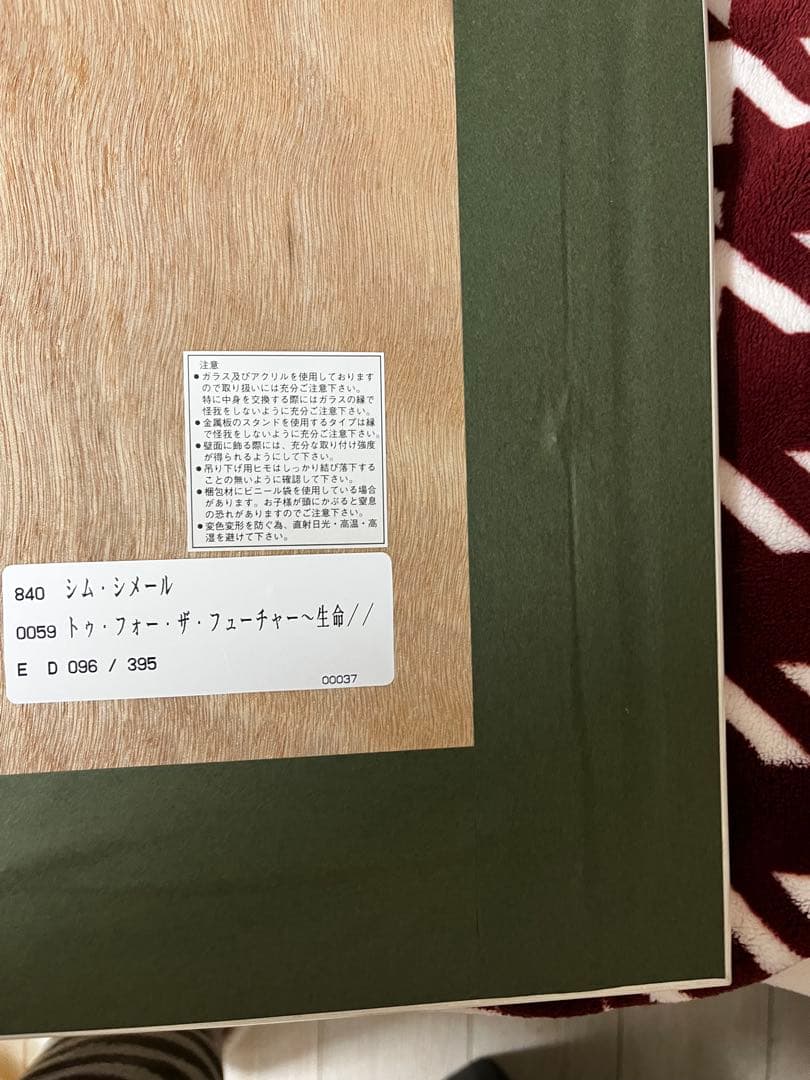 注意
●ガラス及びアクリルを使用しております
ので取り扱いには充分ご注意下さい。
特に中身を交換する際にはガラスの縁で
怪我をしないように充分ご注意下さい。
●金属板のスタンドを使用するタイプは縁
で怪我をしないように充分ご注意下さい。
●壁面に飾る際には、充分な取り付け強度
が得られるようにして下さい。
●吊り下げ用ヒモはしっかり結び落下する
ことの無いように確認して下さい。
●梱包材にビニール袋を使用している場合
があります。お子様が頭にかぶると窒息
の恐れがありますのでご注意下さい。
●変色変形を防ぐ為、直射日光・高温・高
湿を避けて下さい。
840 シム・シメール
0059 トゥ・フォー・ザ・フューチャー～生命//
E D 096 / 395
00037